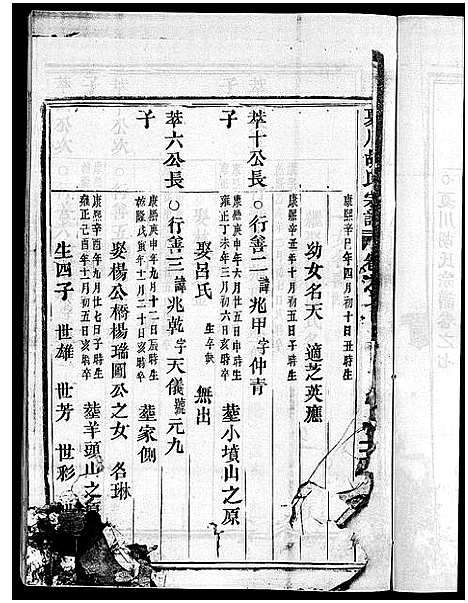 夏川胡氏宗譜
康熙辛巳年四月初十日丑時生
康熙辛丑年十月初五日子時生
幼女名天 適芝英應
萃十公長子 ○行善二 諱兆甲 字仲青
康熙庚申年六月廿五日申時生
雍正丁未年三月初六日亥時卒
塟小墳山之原
娶呂氏 生卒缺 無出
萃六公長子 ○行善三 諱兆乾 字天儀 號元九
康熙庚申年九月十二日辰時生
乾隆戊寅年十二月二十日亥時卒
塟家側
娶楊公橋楊璠圓公之女 名琳
康熙辛酉年九月廿七日子時生
雍正己酉年十一月初五日亥時卒
塟羊頭山之原
生四子 世雄 世芳 世彩
夏川胡氏宗譜卷之七